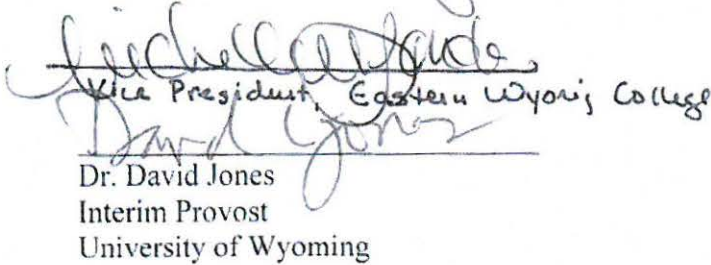 Michelle
Vice President, Eastern Wyoming College
David Jones
Dr. David Jones
Interim Provost
University of Wyoming